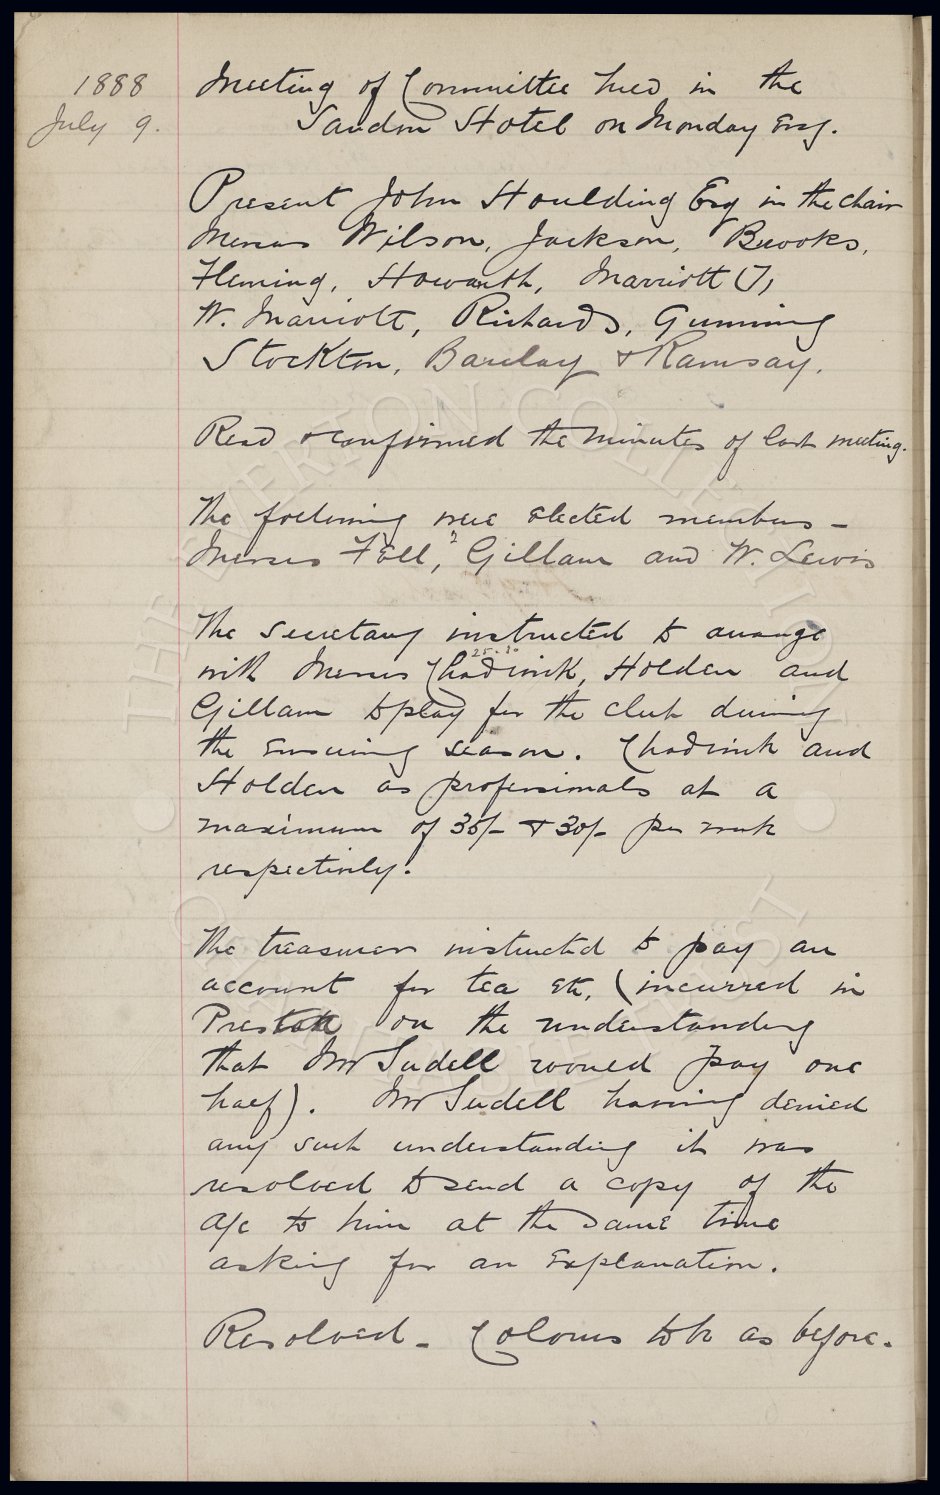 1888
July 9.
Meeting of Committee held in the
Sandon Hotel on Monday Evg.
Present John Houlding Esq in the chair
Messrs Wilson, Jackson, Brooks,
Fleming, Howarth, Marriott (J)
W. Marriott, Richards, Gunning
Stockton, Barclay & Ramsay.
Read & confirmed the minutes of last meeting.
The following were elected members –
Messrs Fall, ? Gillam and W. Lewis
The Secretary instructed to arrange
25-30
with Messrs Chadwick, Holden and
Gillam to play for the club during
the ensuing season. Chadwick and
Holden as professionals at a
maximum of 35/- & 30/- per week
respectively.
The treasurer instructed to pay an
account for tea etc, (incurred in
Preston on the understanding
that Mr Sudell would pay one
half). Mr Sudell having denied
any such understanding it was
resolved to send a copy of the
a/c to him at the same time
asking for an explanation.
Resolved – Colours to be as before.
THE EVERTON COLLECTION
CHARITABLE TRUST